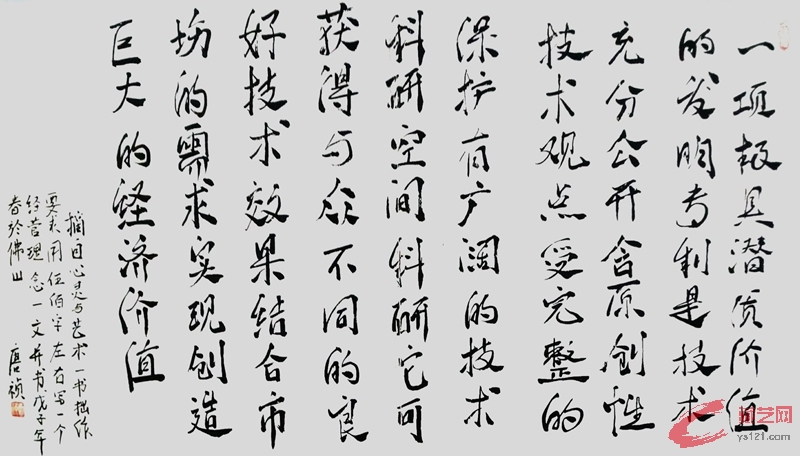 一项极具潜质价值
的发明专利是技术
充分公开含原创性
技术观点受完整的
保护有广阔的技术
科研空间科研它可
获得与众不同的良
好技术效果结合市
场的需求实现创造
巨大的经济价值
摘自心灵与艺术一书拙作
要求用伍佰字左右写一个
经营理念一文并书戊子年
春於佛山
唐祯
艺网
ys121.com